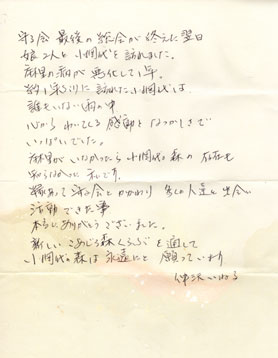 守る会 最後の総会が終えた翌日
娘2人と小網代を訪れました。
麻里の病が悪化して1年。
約1年ぶりに訪れた小網代は
誰もいない雨の中
心からわいてくる感動となつかしさで
いっぱいでした。
麻里がいなかったら小網代の森の存在も
知らなかった私です。
縁あって守る会とかかわり 多くの人達と出会い
活動できた事
本当にありがとうございました。
新しいこあじろ森くらぶを通して
小網代の森は永遠にと願っています